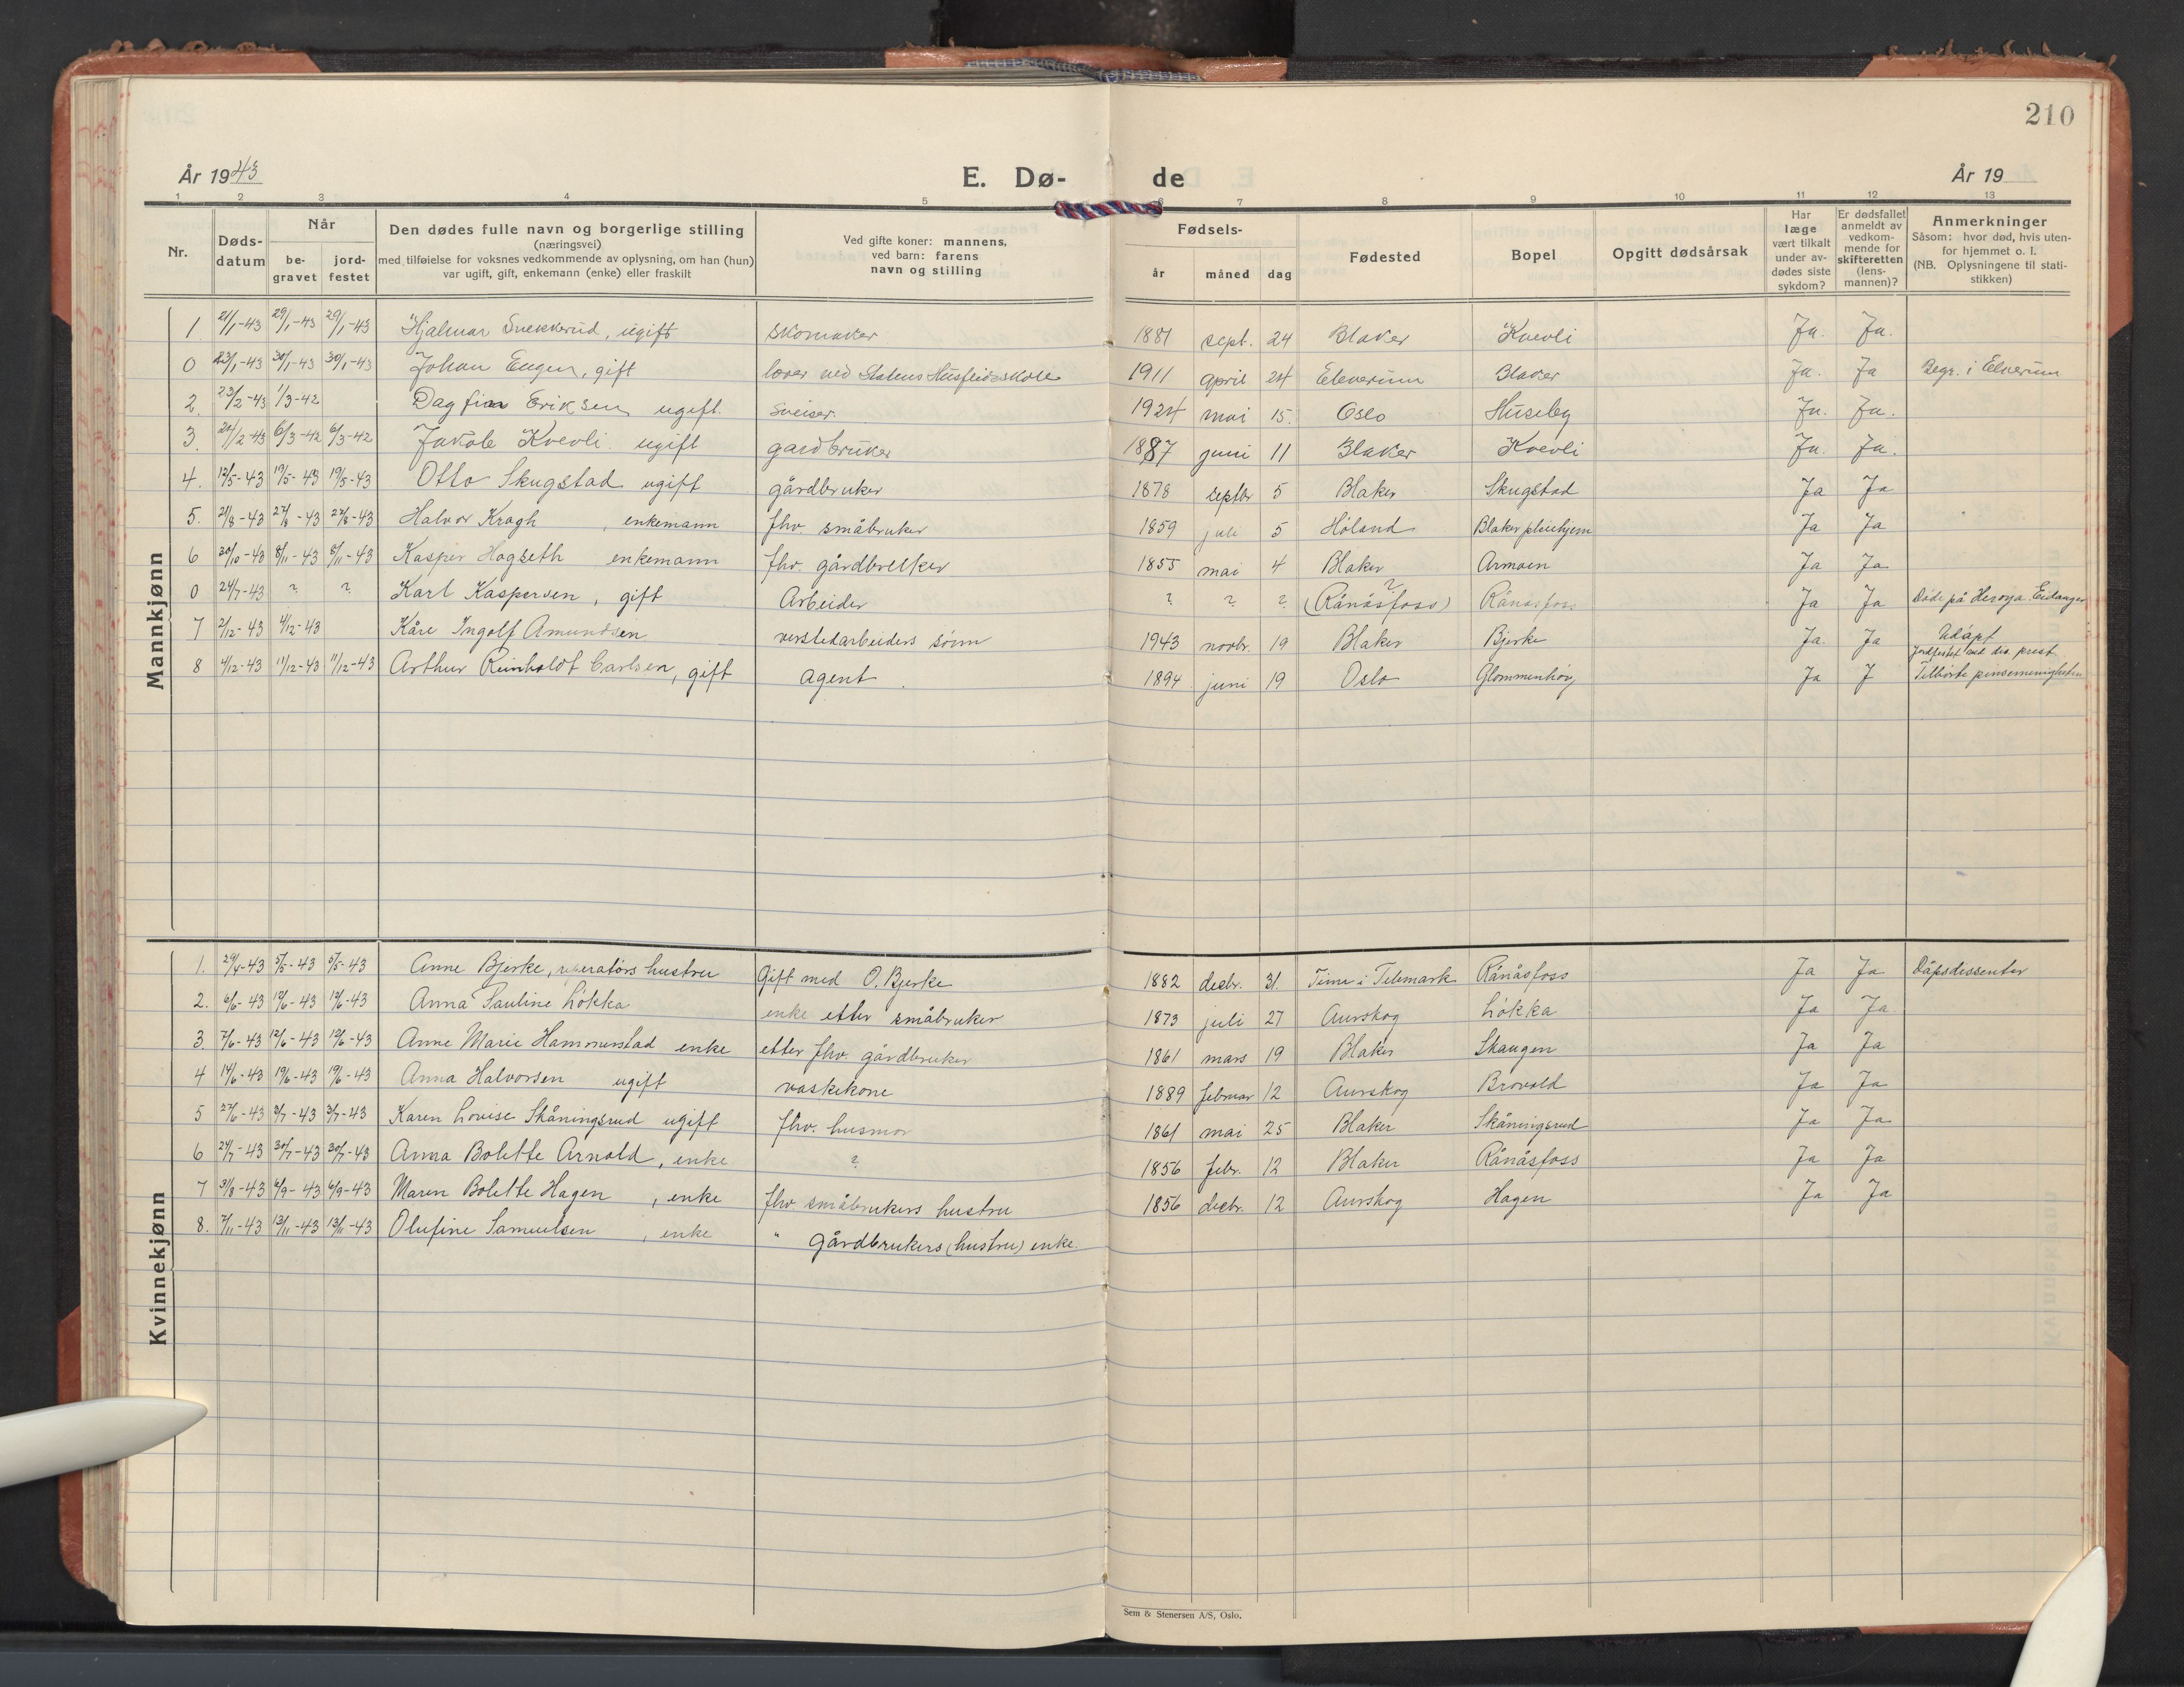 210
År 1943
E. Dø- de
År 19
1 2 3 4 5 6 7 8 9 10 11 12 13
Nr.
Døds-datum
Når
be-gravet
jord-festet
Den dødes fulle navn og borgerlige stilling
(næringsvei)
med tilføielse for voksnes vedkommende av oplysning, om han (hun)
var ugift, gift, enkemann (enke) eller fraskilt
Ved gifte koner: mannens,
ved barn: farens
navn og stilling
Fødsels-
år måned dag
Fødested
Bopel
Opgitt dødsårsak
Har læge vært tilkalt under av-dødes siste sykdom?
Er dødsfallet anmeldt av vedkom-mende for skifteretten (lens-mannen)?
Anmerkninger
Såsom: hvor død, hvis uten-
for hjemmet o. l.
(NB. Oplysningene til stati-
stikken)
Mannkjønn
1 21/1-43 29/1-43 29/1-43 Hjalmar Snekkerud, ugift skomaker 1881 sept. 24 Blaker Kvevli Ja. Ja.
0 23/1-43 30/1-43 30/1-43 Johan Eugen, gift lærer ved Statens Husflidsskole 1911 april 24 Eleverum Blaker Ja. Ja Begr. i Elverum
2. 23/2-43 1/3-42 Dagfinn Eriksen ugift sveiser. 1924 mai 15. Oslo Huseby Ja. Ja.
3. 24/2-43 6/3-42 6/3-42 Jakob Kvevli ugift gardbruker 1887 juni 11 Blaker Kvevli Ja. Ja.
4. 12/5-43 19/5-43 19/5-43 Otto Skugstad ugift gårdbruker 1878 septbr 5 Blaker Skugstad Ja Ja
5. 21/8-43 27/8-43 27/8-43 Halvor Kragh, enkemann fhv. småbruker 1859 juli 5 Høland Blaker pleiehjem Ja Ja
6 30/10-43 8/11-43 8/11-43 Kasper Hogseth enkemann fhv. gårdbruker 1855 mai 4 Blaker Armoen Ja Ja
0 24/7-43 ? ? Karl Kaspersen, gift Arbeider ? ? ? ? (Rånåsfoss) Rånåsfoss Ja Ja Døde på Herøya Eidanger
7 2/12-43 4/12-43 Kåre Ingolf Amundsen verstedarbeiders sønn 1943 novbr. 19 Blaker Bjerke Ja. Ja Udøpt
8 4/12-43 11/12-43 11/12-43 Arthur Reinholdt Carlsen, gift agent 1894 juni 19 Oslo Glommenhøy Ja J Jordfestet ved dis. prest
Tilhørte pinsemenigheten
Kvinnekjønn
1. 29/4-43 5/5-43 5/5-43 Anne Bjerke, operatørs hustru Gift med O. Bjerke 1882 decbr. 31. i Telemark Rånåsfoss Ja Ja Dåpsdissenter
2. 6/6-43 12/6-43 12/6-43 Anna Pauline Løkka enke etter småbruker 1873 juli 27 Aurskog Løkka Ja Ja
3. 7/6-43 12/6-43 12/6-43 Anne Marie Hammerstad enke etter fhv. gårdbruker 1861 mars 19 Blaker Skaugen Ja Ja
4 14/6-43 19/6-43 19/6-43 Anna Halvorsen ugift vaskekone 1889 februar 12 Aurskog Brovold Ja Ja
5 27/6-43 3/7-43 3/7-43 Karen Lovise Skåningsrud ugift fhv. husmor 1861 mai 25 Blaker Skåningsrud Ja Ja
6 24/7-43 30/7-43 30/7-43 Anna Bolette Arnold, enke ? 1856 febr. 12 Blaker Rånåsfoss Ja Ja
7 31/8-43 6/9-43 6/9-43 Maren Bolette Hagen, enke fhv småbrukers hustru 1856 decbr. 12 Aurskog Hagen Ja Ja
8. 7/11-43 13/11-43 13/11-43 Olufine Samuelsen, enke " gårdbrukers (hustru) enke.
Sem & Stenersen A/S, Oslo.